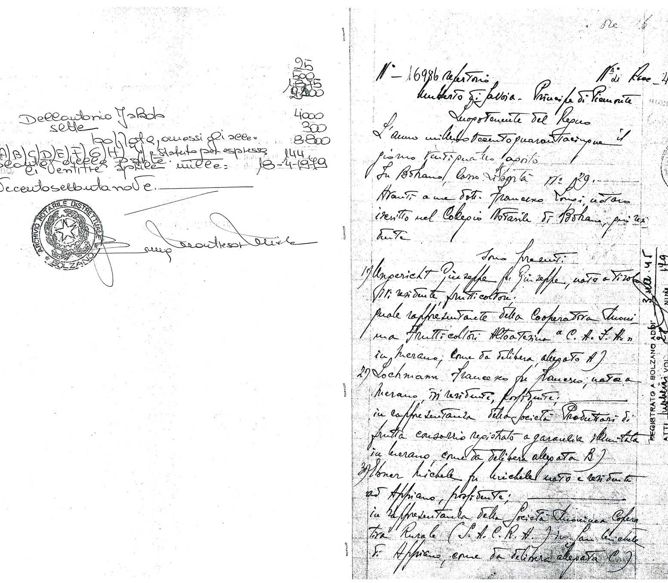 25
500
4000
300
8800
Dellantonio Jakob
sette
bollata, omessi gli alle-
A)B)C)D)E)F)G)H) statuto per espressa
ventitre Aprile mille-
18-4-1979
144
ARCHIVIO NOTARILE DISTRETTUALE
BOLZANO
N° - 16986 repertorio
Umberto di Savoia - Principe di Piemonte
Luogotenente del Regno
L'anno millenovecentoquarantacinque il
giorno ventiquattro Agosto
In Bolzano, Corso Libertà n° 29.
Avanti a me dott. Francesco, notaro
iscritto nel Collegio Notarile di Bolzano, qui resi-
dente
Sono presenti
1) Ungericht Giuseppe fu Giuseppe, nato a Tirolo
ivi residente, frutticoltore,
quale rappresentante della Cooperativa Anoni-
ma Frutticoltori Altoatesina "C.A.F.A."
in Merano, come da delibera, allegato A)
2) Lochmann Francesco fu Francesco, nato a
Merano, ivi residente, possidente,
in rappresentanza della Società Produttori di
frutta consorzio registrato a garanzia illimitata
in Merano come da delibera allegata B)
3) Ebner Michele fu Michele nato e residente
ad Appiano, possidente;
in rappresentanza della Società Anonima Coope-
rativa Rurale (S.A.C.R.A.) in San Michele
di Appiano, come da delibera allegata C)
REGISTRATO A BOLZANO ADDI
ATTI VOL. NUM. 179